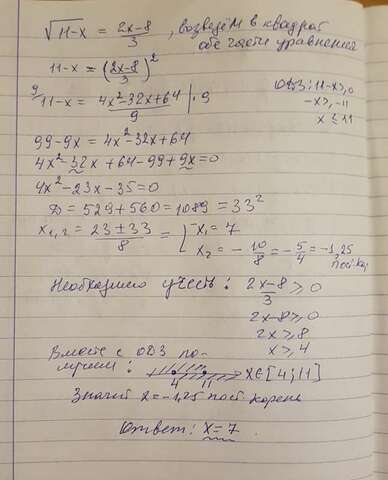 √11-x = 2x-8/3 , возведём в квадрат
обе части уравнения
11-x = (2x-8/3)²
ОДЗ: 11-x≥0
-x≥-11
x≤11
9/ 11-x = 4x²-32x+64/9 | ·9
99-9x = 4x²-32x+64
4x²-32x+64-99+9x=0
4x²-23x-35=0
D = 529+560=1089=33²
x₁,₂ = 23±33/8 = [ x₁=7
x₂ = -10/8 = -5/4 = -1,25
пост. кор
Необходимо учесть: 2x-8/3 ≥ 0
2x-8≥0
2x≥8
x≥4
Вместе с ОДЗ по-
лучаем: 4 11 x∈[4;11]
Значит x=-1,25 пост. корень
Ответ: x=7.